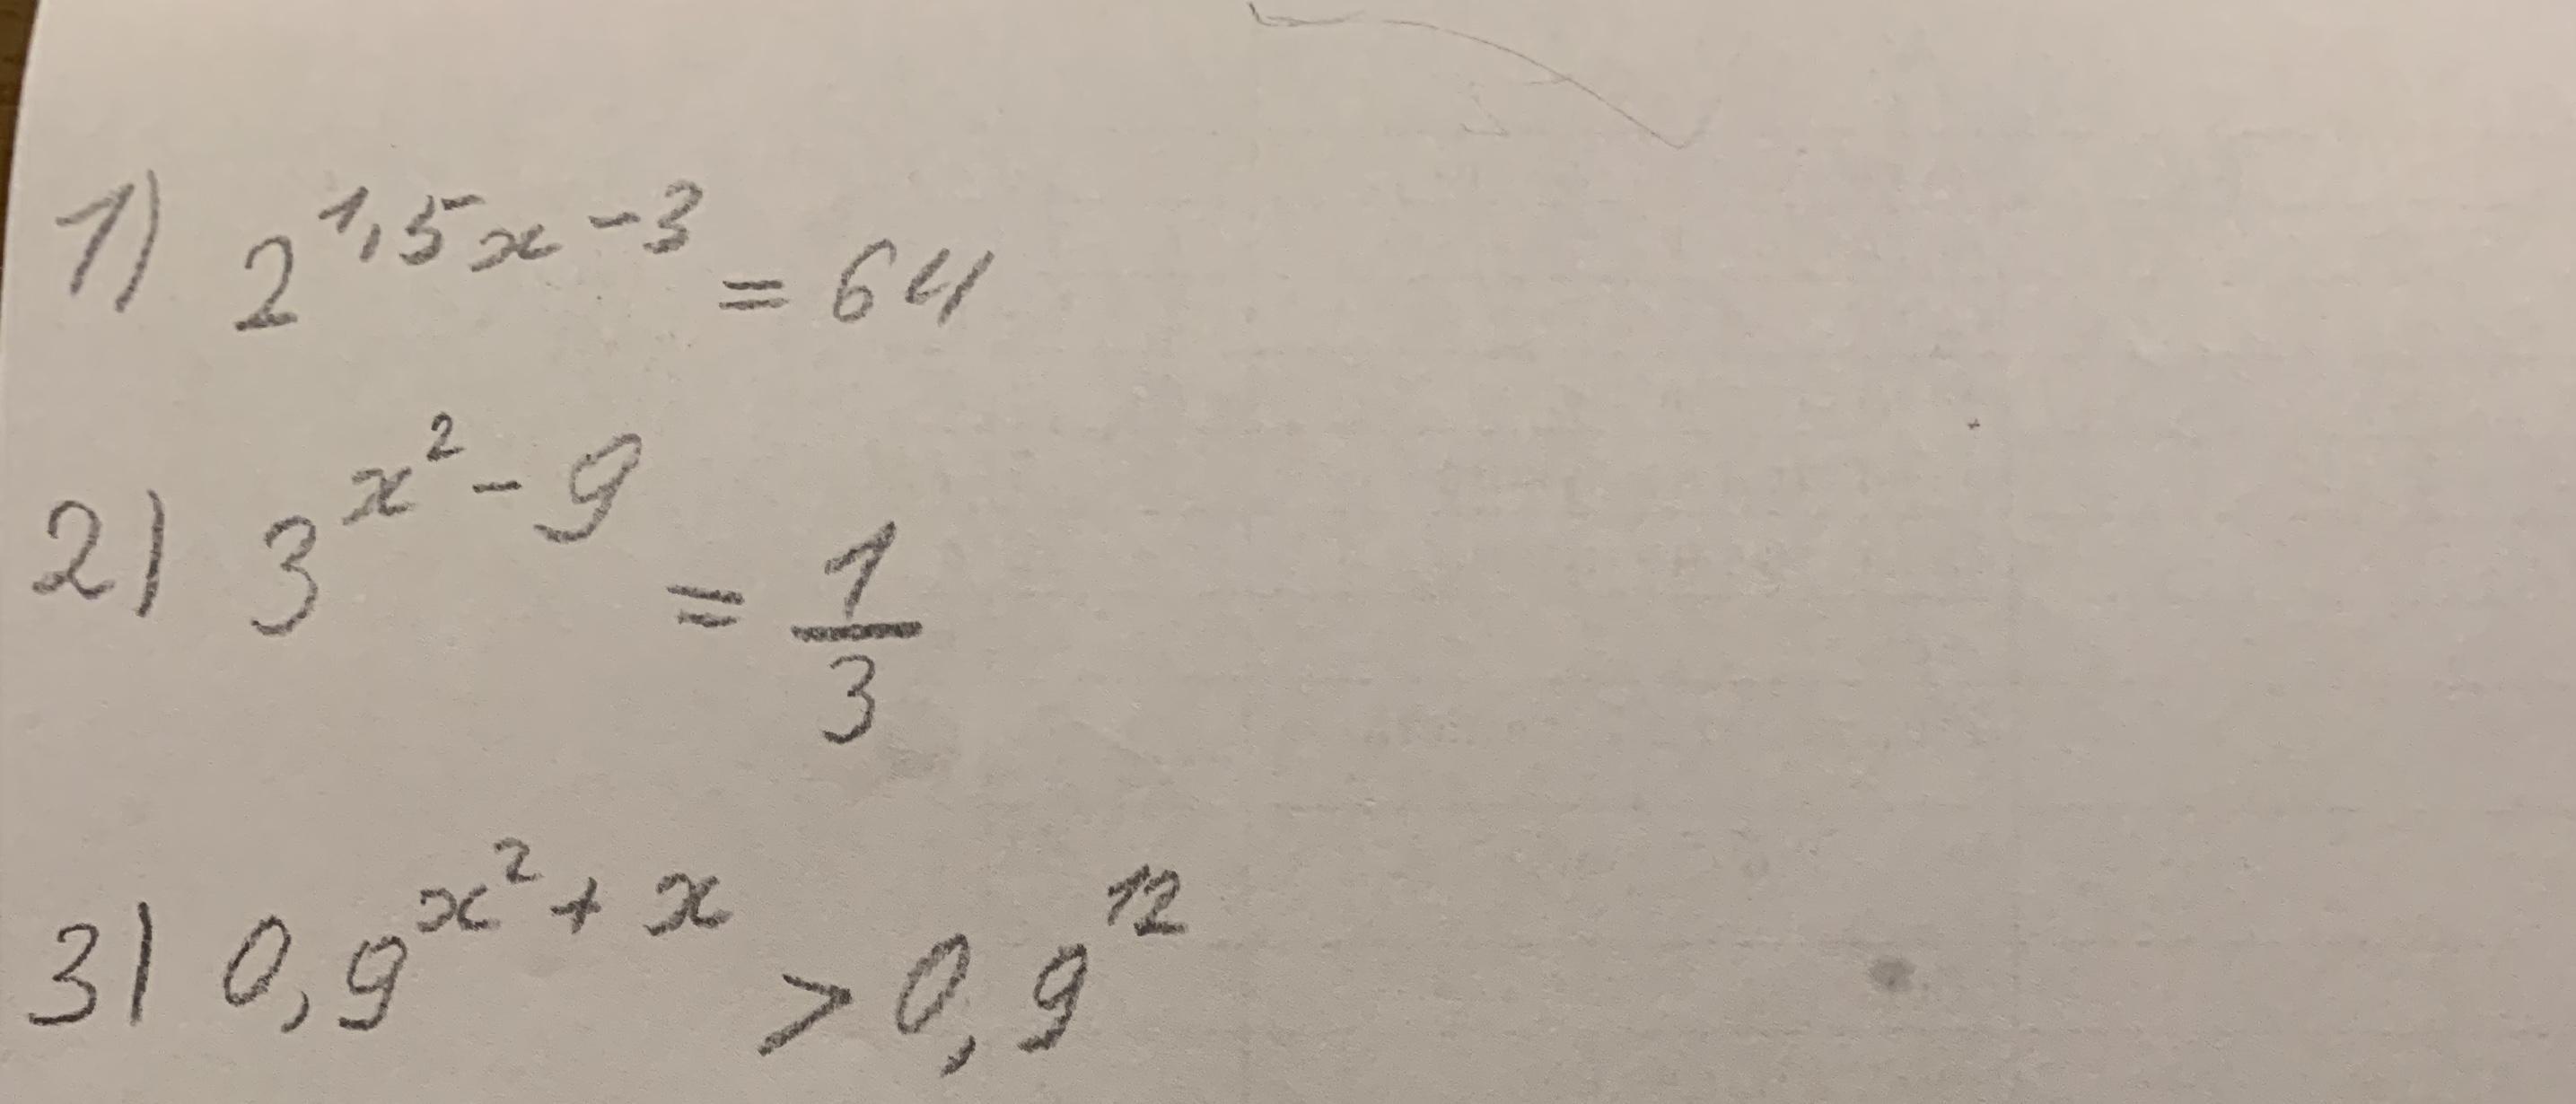 1) 2^{1,5x-3} = 64
2) 3^{x^2-9} = \frac{1}{3}
3) 0,9^{x^2+x} > 0,9^{12}